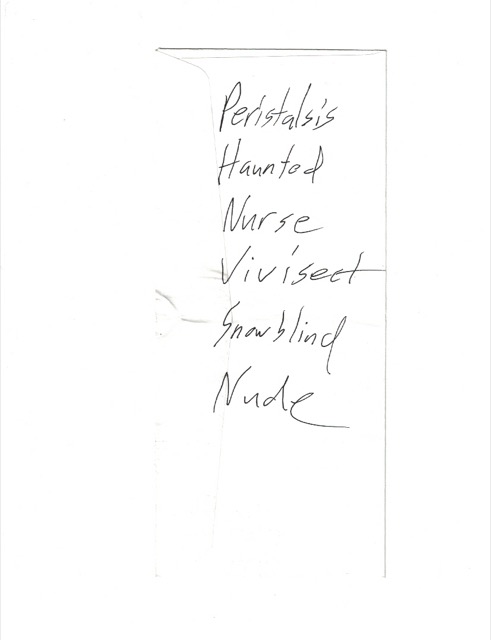 Peristalsis
Haunted
Nurse
Vivisect
Snowblind
Nude